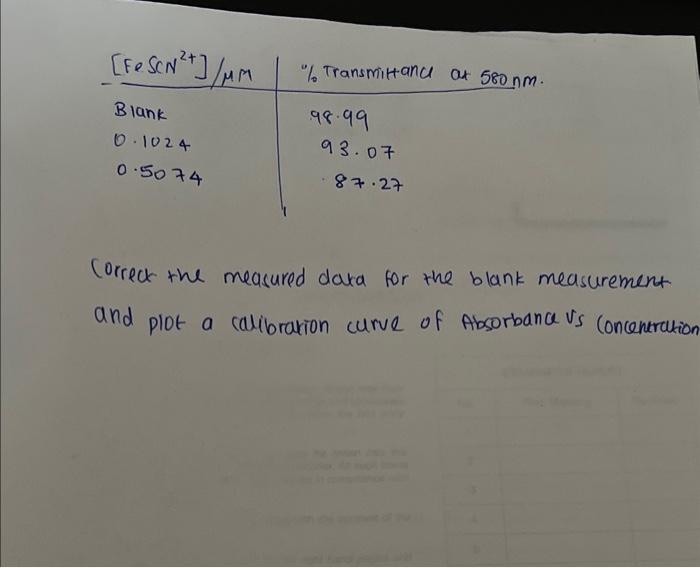 [FeSCN²⁺]/μM % Transmittance at 580nm.
Blank 98.99
0.1024 93.07
0.5074 87.27
Correct the measured data for the blank measurement
and plot a calibration curve of Absorbance Vs Concentration